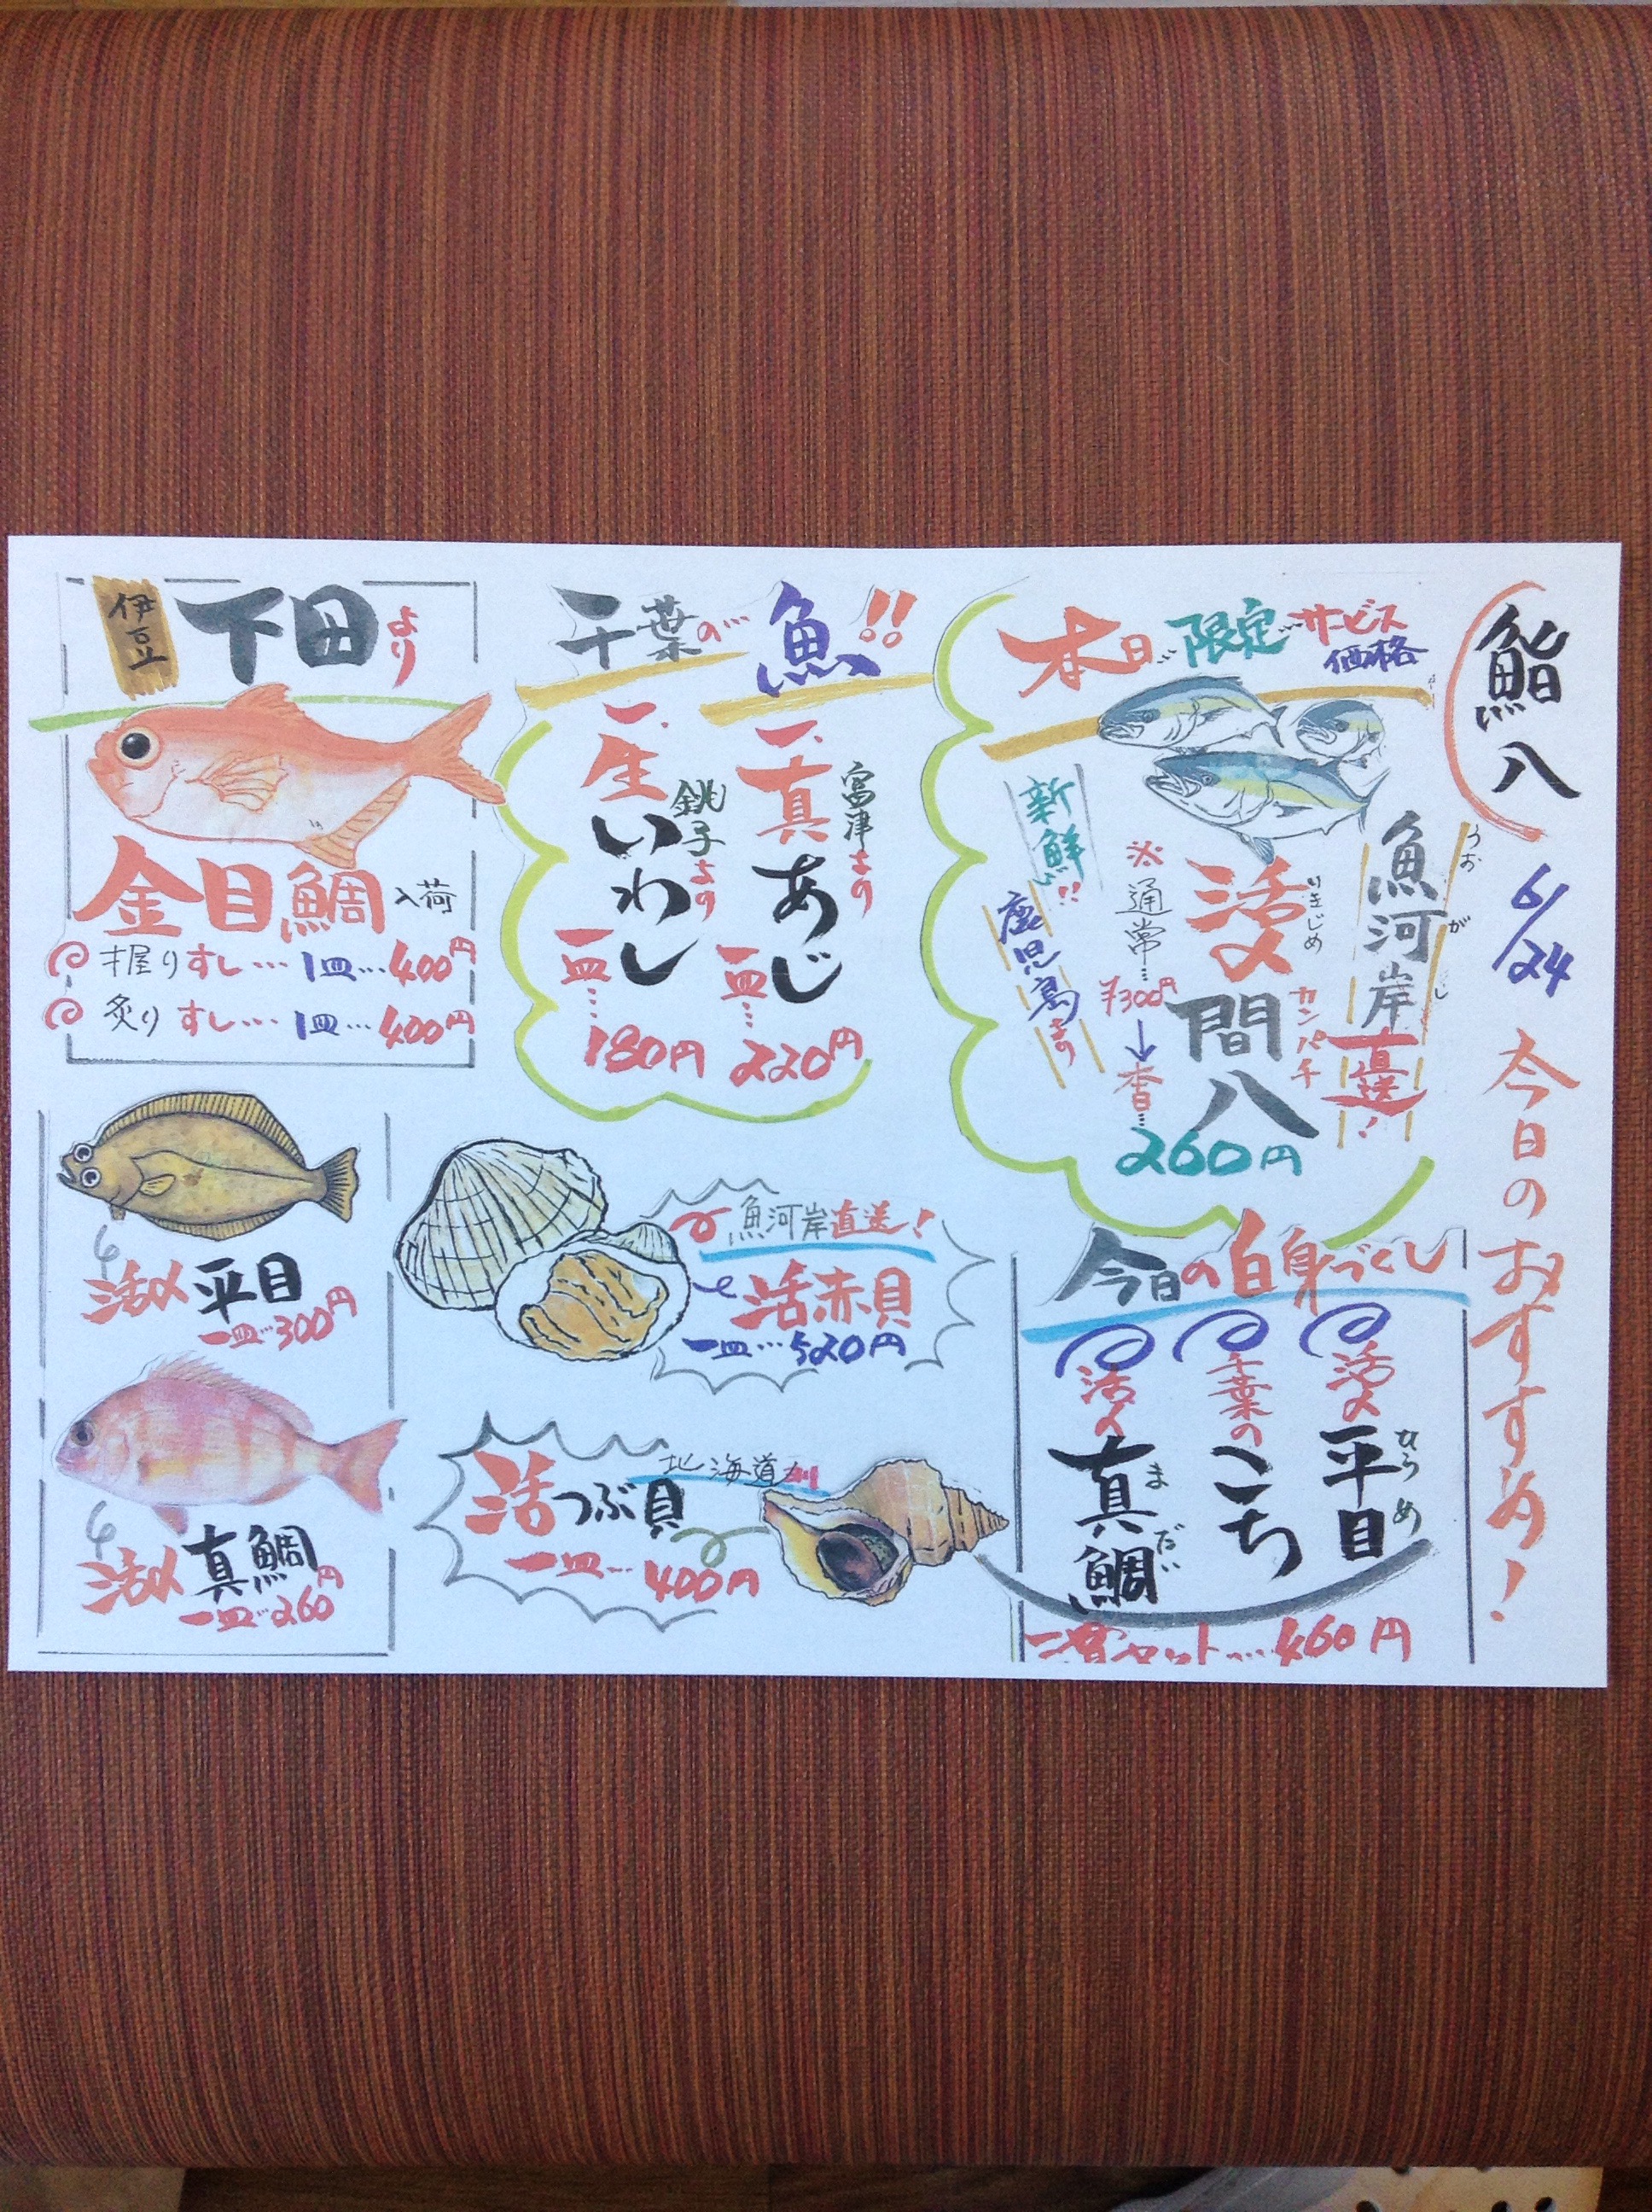 鮨八
6/24
今日のおすすめ！
本日…限定…サービス
価格
魚河岸
うおがし
直送！
活〆
いきじめ
間八
カンパチ
※通常…¥300円
↓
本日…
260円
新鮮!!
鹿児島より
千葉の…魚!!
一、真あじ
富津より
一皿…
220円
一、生いわし
銚子より
一皿…
180円
伊豆
下田より
金目鯛入荷
握りすし…1皿…400円
炙りすし…1皿…400円
今日の白身づくし
活〆平目
ひらめ
千葉のこち
活〆真鯛
まだい
一貫セット…460円
魚河岸直送！
活赤貝
一皿…520円
北海道
活つぶ貝
一皿…400円
活〆平目
一皿…300円
活〆真鯛
一皿…260円